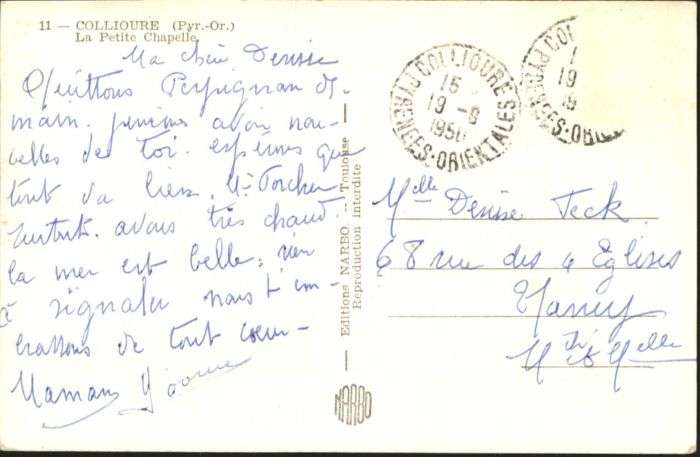 11 — COLLIOURE (Pyr.-Or.)
La Petite Chapelle
Ma chère Denise
Quittons Perpignan de-
main. pensions avoir nou-
velles de toi. espérons que
tout va bien.
avons très chaud.
la mer est belle, rien
à signaler nous t'em-
brassons de tout cœur-
Maman Yvonne
— Editions NARBO. — Toulouse —
Reproduction interdite
NARBO
COLLIOURE
15
19-8
1950
PYRENEES-ORIENTALES
Melle Denise Teck
68 rue des 4 Eglises
Nancy
Mthe & Melle